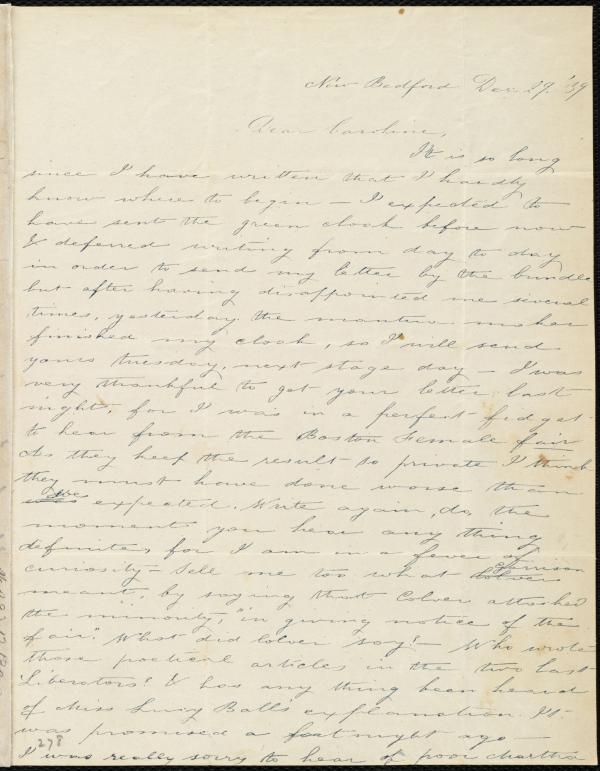 New Bedford Dec. 29. '39
Dear Caroline,
It is so long
since I have written that I hardly
know where to begin — I expected to
have sent the green cloak before now
& deferred writing from day to day
in order to send my letter by the bundle
but after having disappointed me several
times, yesterday the mantua maker
finished my cloak, so I will send
yours tuesday, next stage day — I was
very thankful to get your letter last
night, for I was in a perfect fidget
to hear from the Boston Female fair
As they keep the result so private I think
they must have done worse than
we
expected. Write again, do, the
moment you hear any thing
definite, for I am in a fever of
curiosity — Tell me too what Garrison
meant, by saying that Colver attacked
the minority, "in giving notice of the
fair". What did Colver say? — Who wrote
those poetical articles in the two last
Liberators? & has any thing been heard
of Miss Lucy Ball's explanation. It
was promised a fortnight ago —
278
I was really sorry to hear of poor